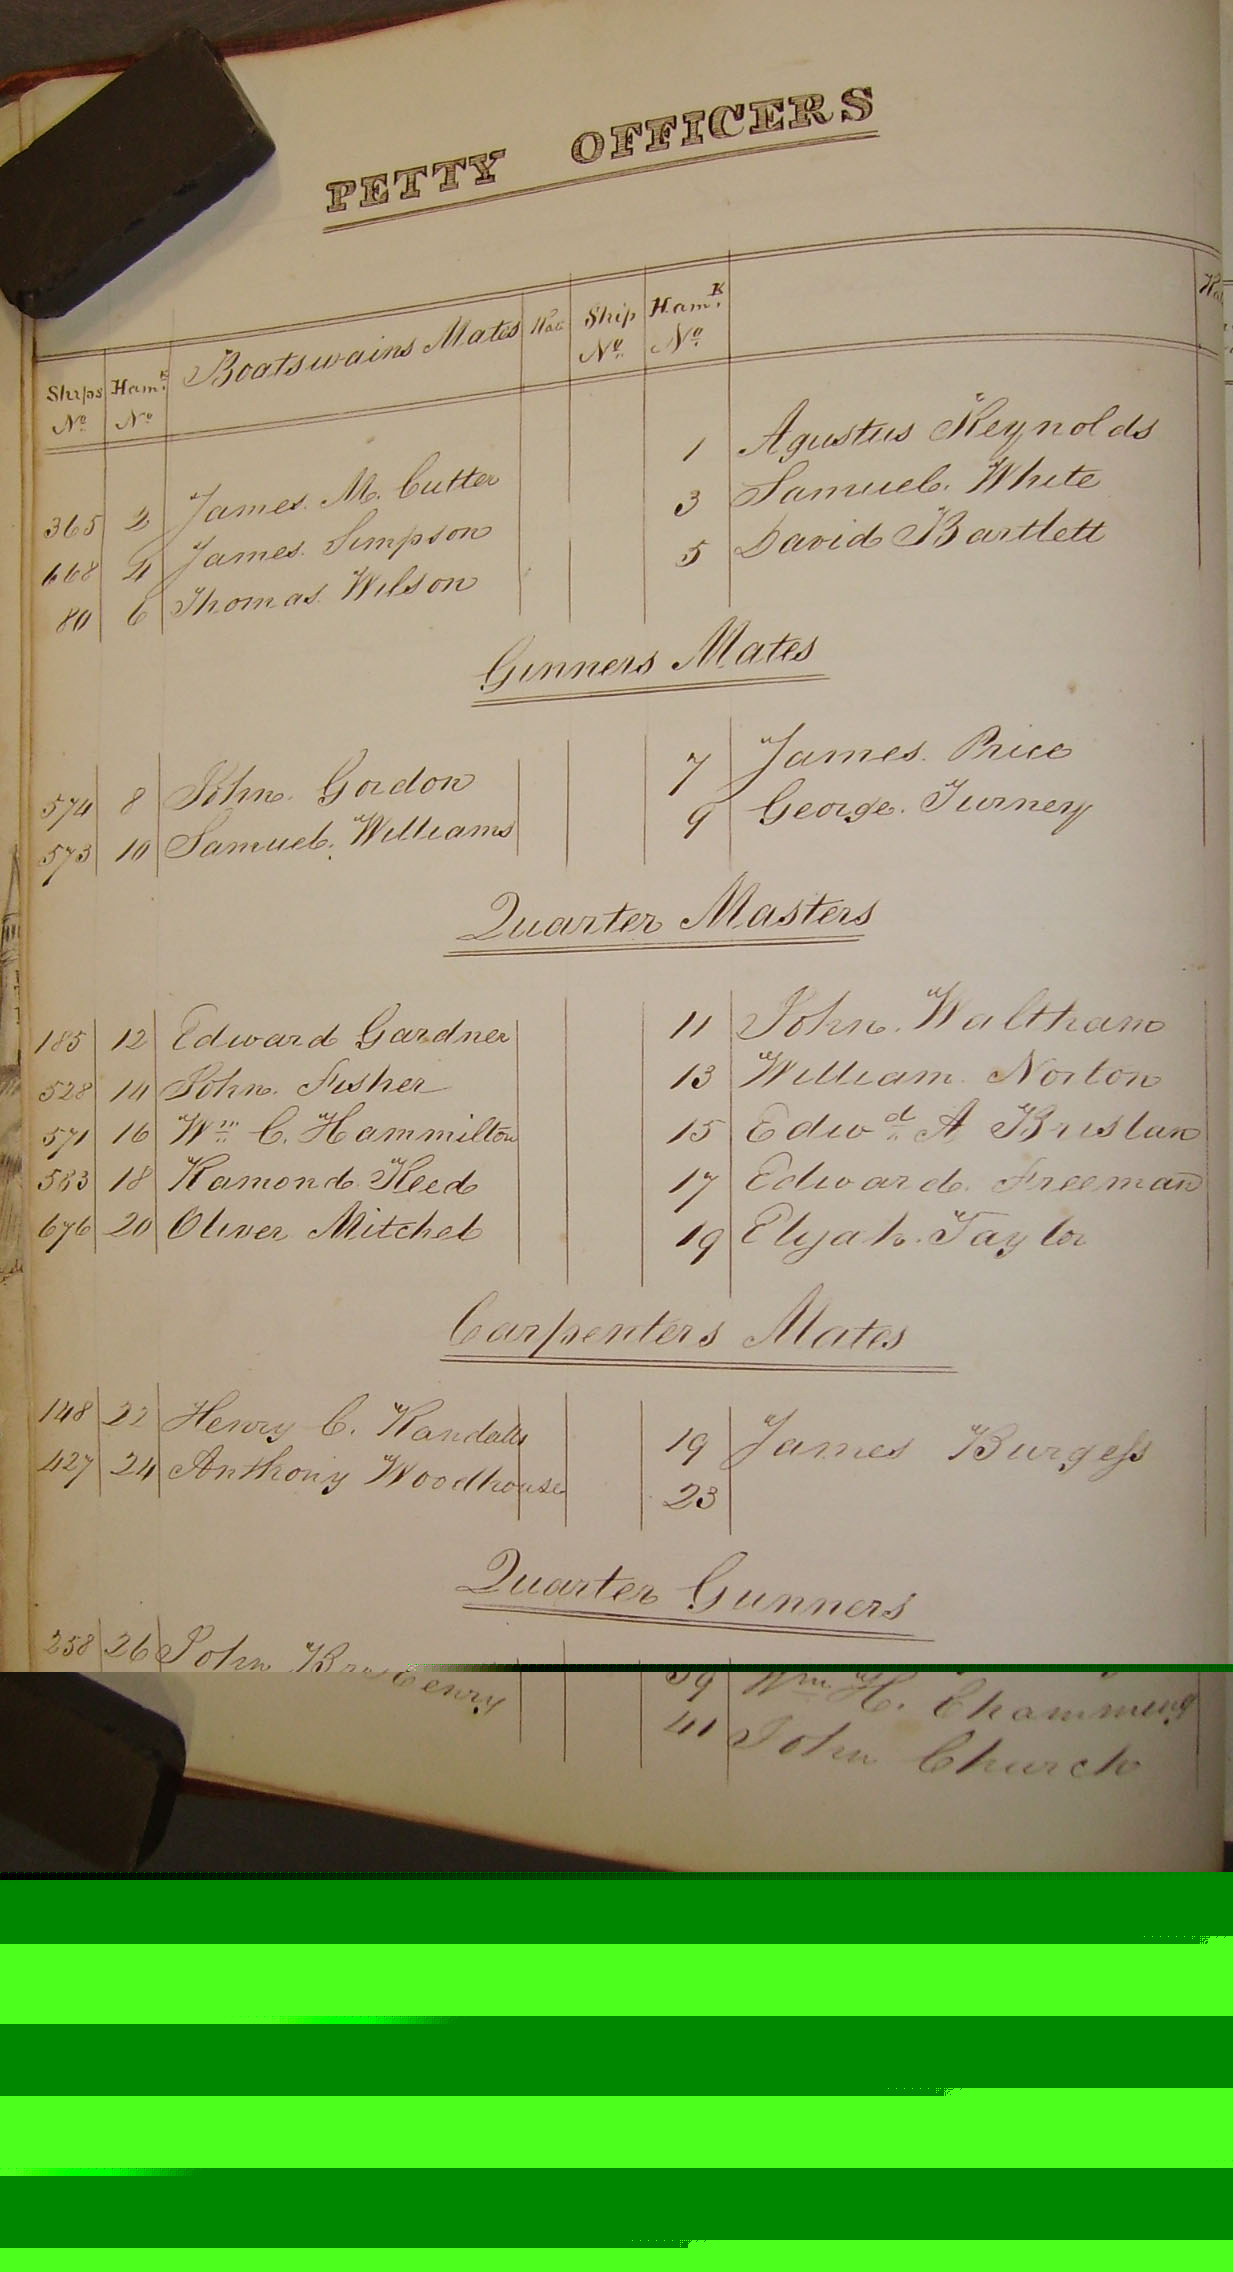 PETTY OFFICERS
Ships No. Ham.k No. Boatswains Mates Rate Ship No. Ham.k No.
365 2 James. M. Cutter 1 Agustus Reynolds
668 4 James. Simpson 3 Samuel. White
80 6 Thomas. Wilson 5 David Bartlett
Gunners Mates
574 8 John. Gordon 7 James. Price
573 10 Samuel. Williams 9 George. Turney
Quarter Masters
185 12 Edward Gardner 11 John. Waltham
528 14 John. Fisher 13 William. Norton
571 16 Wm. C. Hammilton 15 Edwd. A Breslan
583 18 Ramond. Reed 17 Edward. Freeman
676 20 Oliver Mitchel 19 Elijah. Taylor
Carpenters Mates
148 22 Henry C. Randalls 19 James Burgess
427 24 Anthony Woodhouse 23
Quarter Gunners
258 26 John
39 Wm. H. Chamming
41 John Church